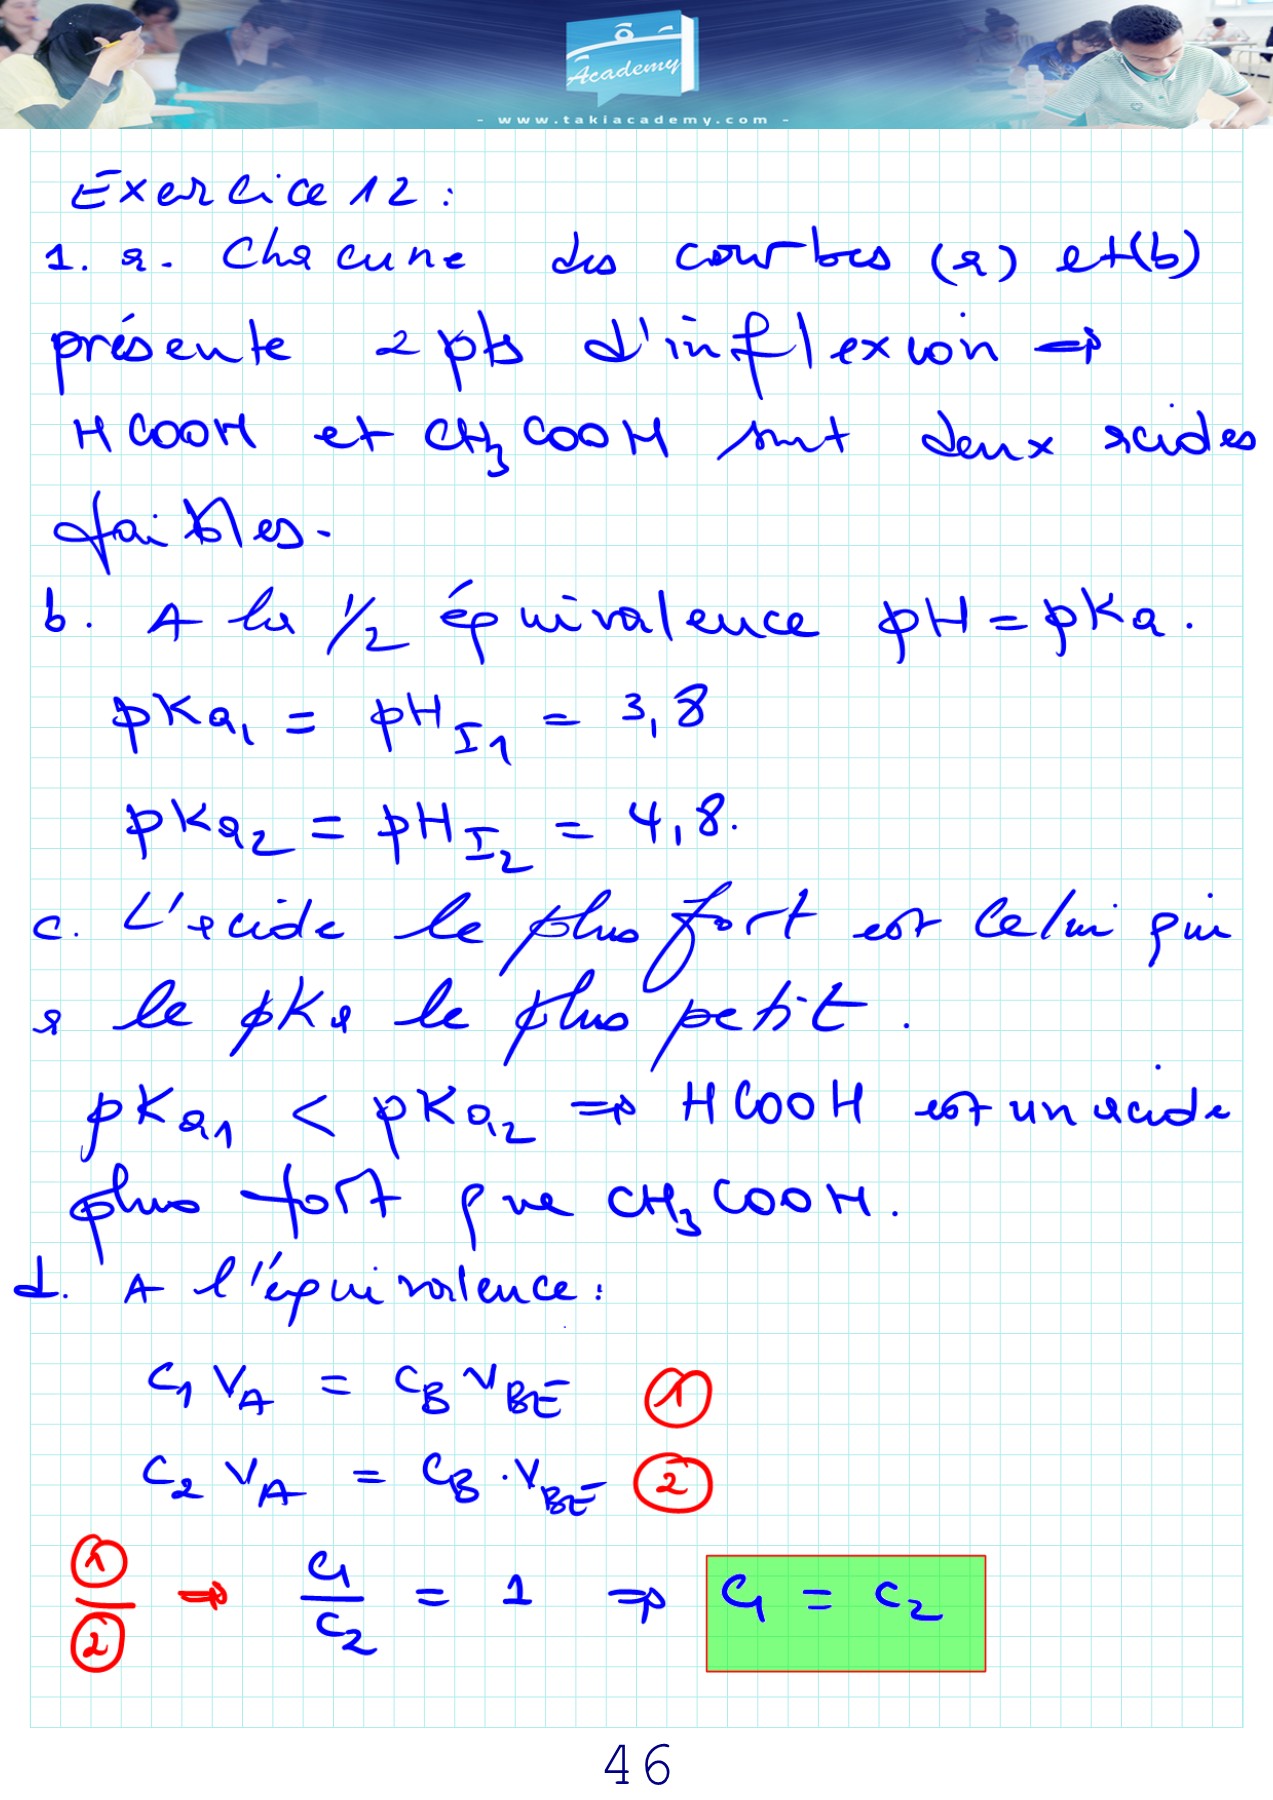 Academy
- www.takiacademy.com -
Exercice 12 :
1. a. Chacune des courbes (a) et (b)
présente 2 pts d'inflexion ⇒
HCOOH et CH₃COOH sont deux acides
faibles.
b. A la 1/2 équivalence pH = pKa.
pKa₁ = pH_I₁ = 3,8
pKa₂ = pH_I₂ = 4,8.
c. L'acide le plus fort est celui qui
a le pKa le plus petit.
pKa₁ < pKa₂ ⇒ HCOOH est un acide
plus fort que CH₃COOH.
d. A l'équivalence :
C₁ V_A = C_B V_BE ①
C₂ V_A = C_B . V_BE ②
①/② ⇒ C₁/C₂ = 1 ⇒ C₁ = C₂
46